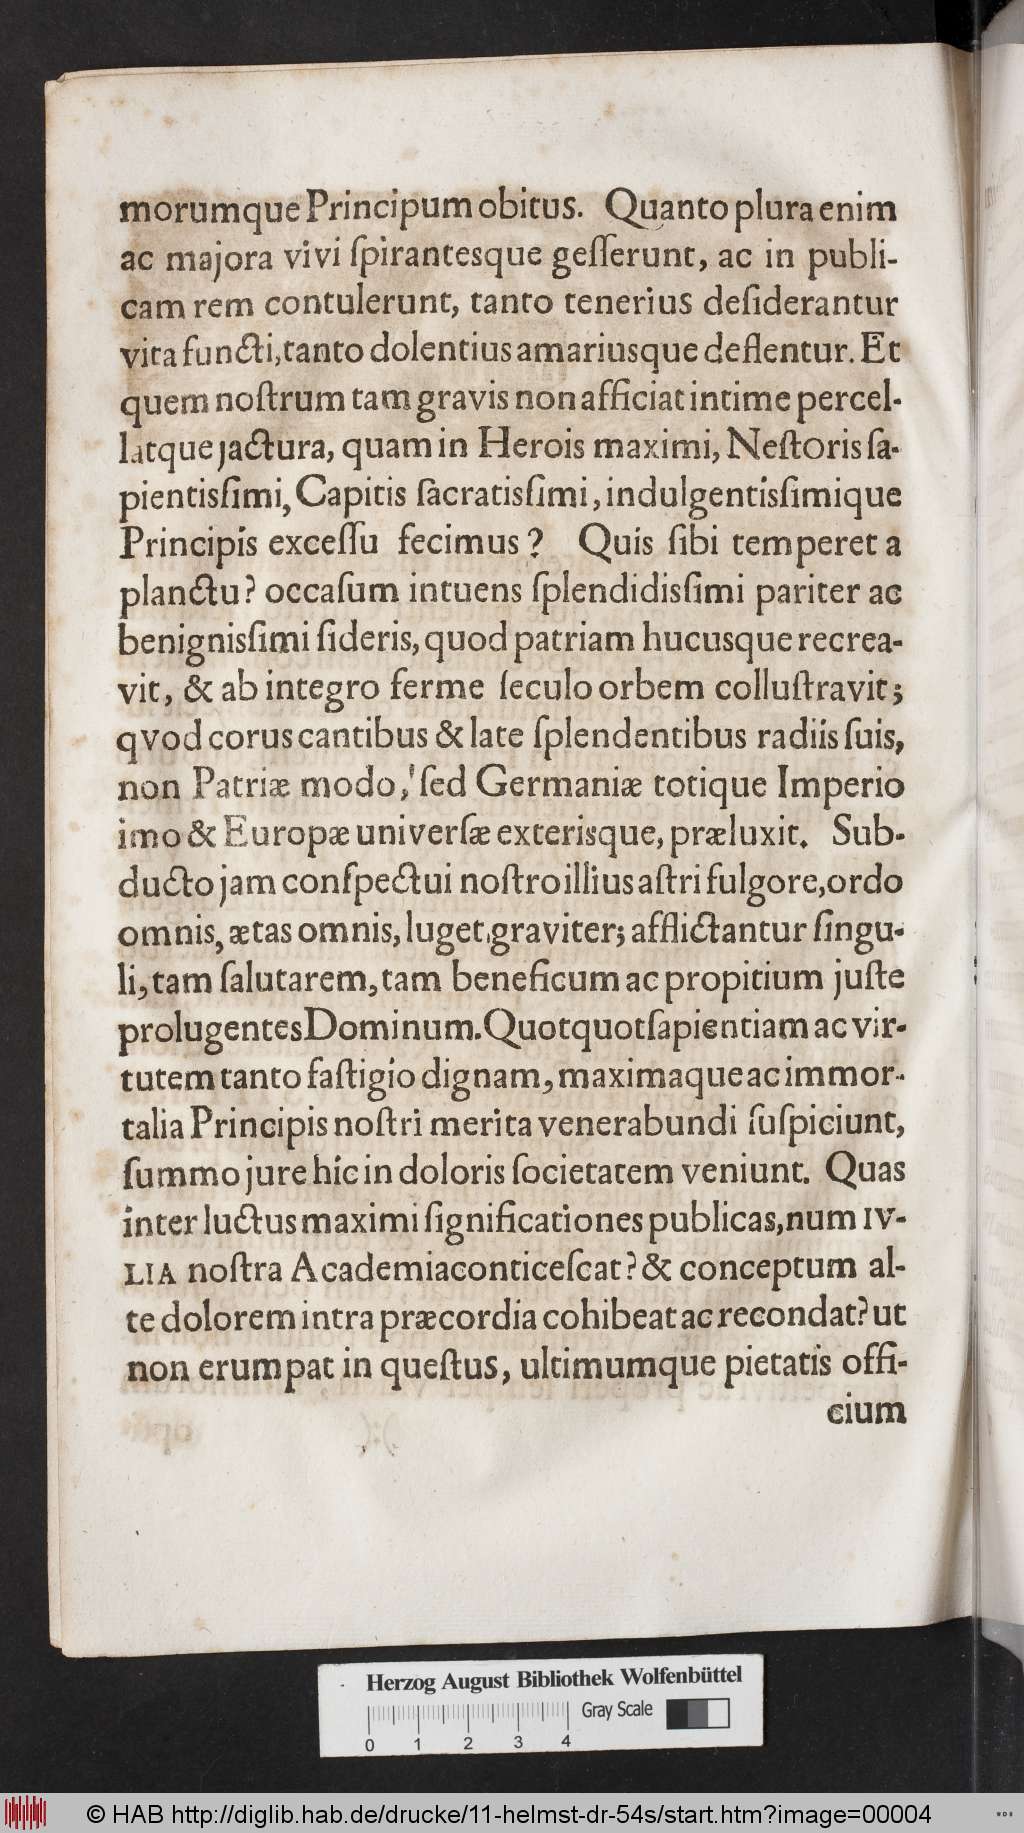 morumque Principum obitus. Quanto plura enim
ac majora vivi ſpirantesque geſſerunt, ac in publi-
cam rem contulerunt, tanto tenerius deſiderantur
vita functi, tanto dolentius amariusque deflentur. Et
quem noſtrum tam gravis non afficiat intime percel-
latque jactura, quam in Herois maximi, Neſtoris ſa-
pientisſimi, Capitis ſacratisſimi, indulgentisſimique
Principis exceſſu fecimus? Quis ſibi temperet a
planctu? occaſum intuens ſplendidisſimi pariter ac
benignisſimi ſideris, quod patriam hucusque recrea-
vit, & ab integro ferme ſeculo orbem colluſtravit;
qvod corus cantibus & late ſplendentibus radiis ſuis,
non Patriæ modo, ſed Germaniæ totique Imperio
imo & Europæ univerſæ exterisque, præluxit. Sub-
ducto jam conſpectui noſtro illius aſtri fulgore, ordo
omnis, ætas omnis, luget graviter; afflictantur ſingu-
li, tam ſalutarem, tam beneficum ac propitium juſte
prolugentes Dominum. Quotquot ſapientiam ac vir-
tutem tanto faſtigio dignam, maximaque ac immor-
talia Principis noſtri merita venerabundi ſuſpiciunt,
ſummo jure hic in doloris ſocietatem veniunt. Quas
inter luctus maximi ſignificationes publicas, num IV-
LIA noſtra Academia conticeſcat? & conceptum al-
te dolorem intra præcordia cohibeat ac recondat? ut
non erumpat in queſtus, ultimumque pietatis offi-
cium
Herzog August Bibliothek Wolfenbüttel
Gray Scale
0 1 2 3 4
© HAB http://diglib.hab.de/drucke/11-helmst-dr-54s/start.htm?image=00004